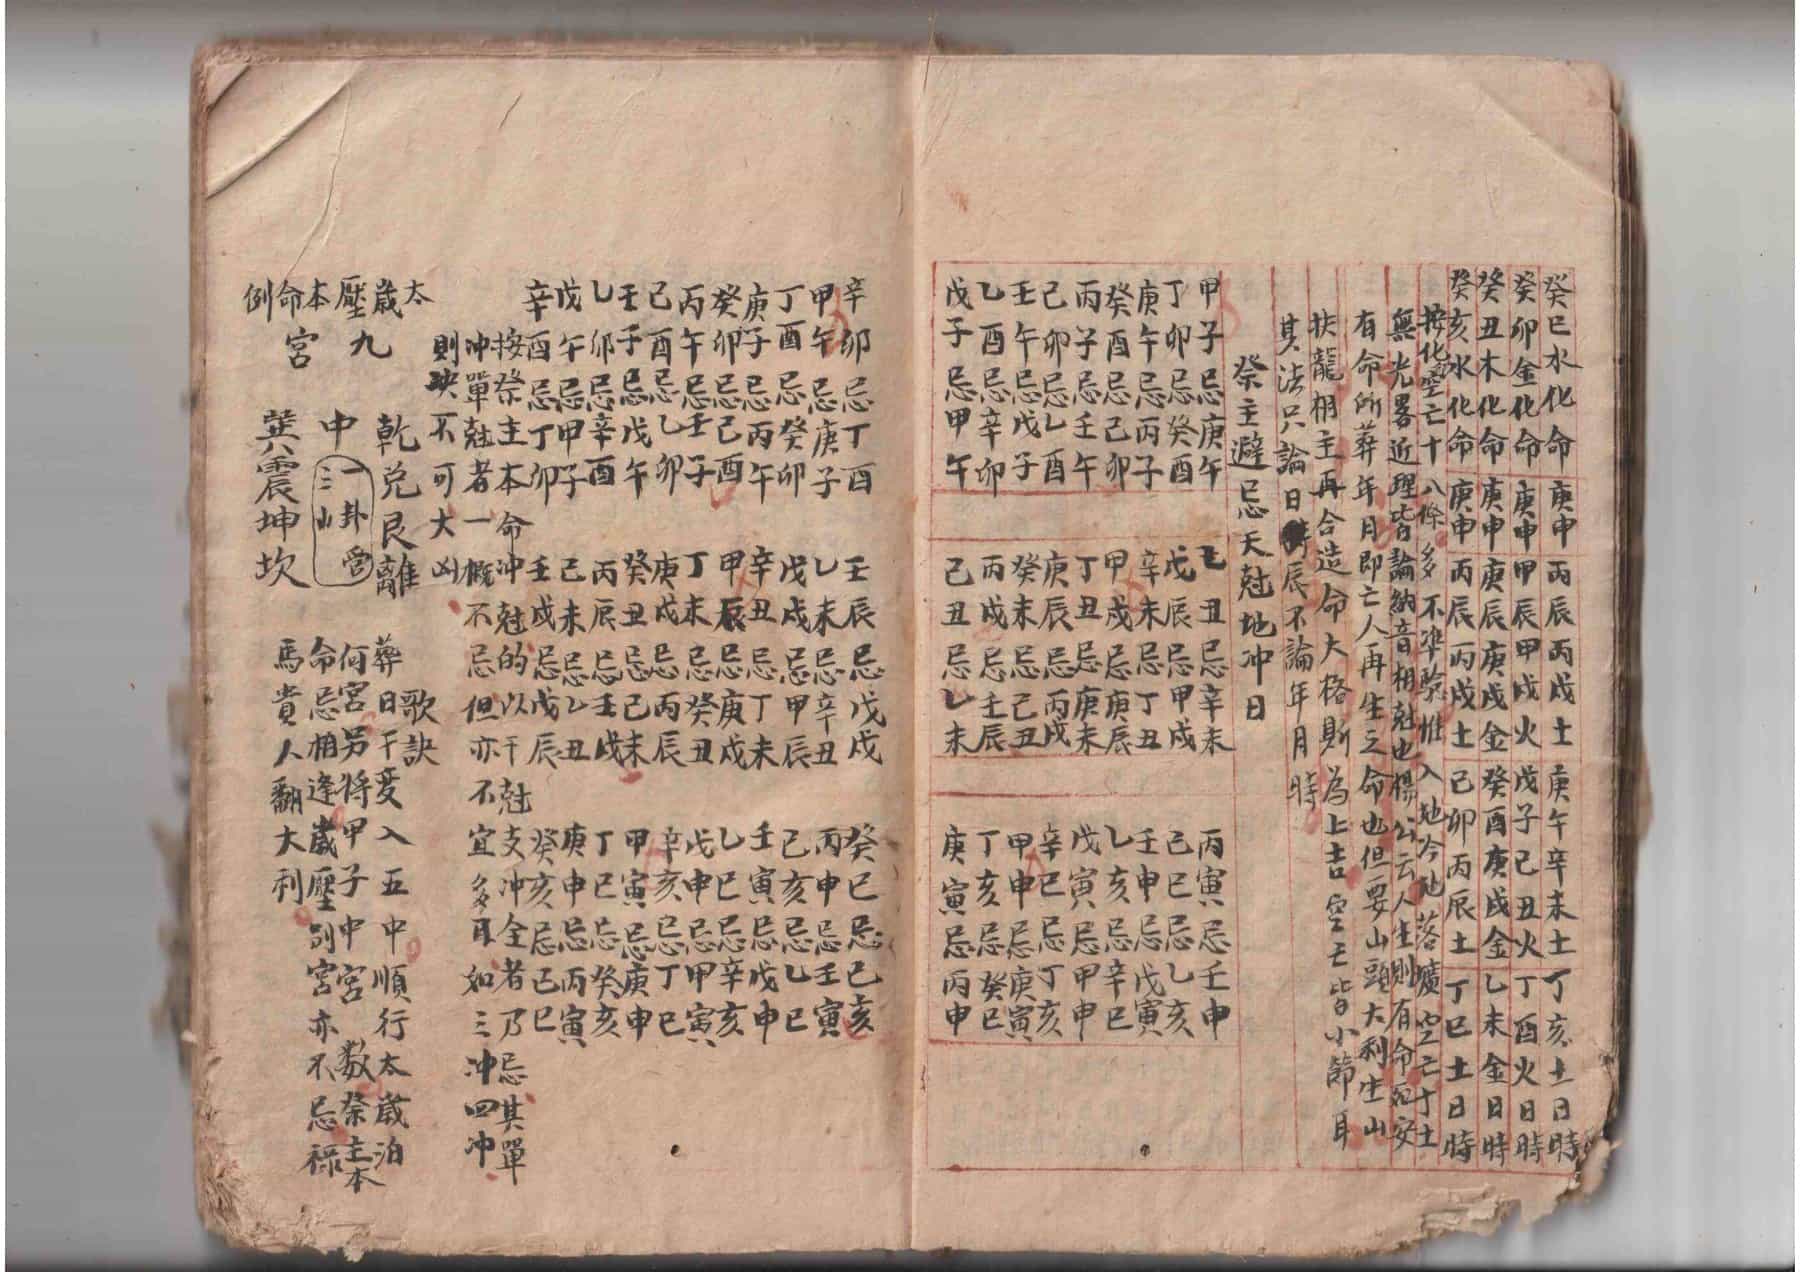 癸巳水化命庚申丙辰丙戌土庚午辛未土丁亥土日時
癸卯金化命庚申甲辰甲戌火戊子己丑火丁酉火日時
癸丑木化命庚申庚辰庚戌金癸酉庚戌金乙未金日時
癸亥水化命庚申丙辰丙戌土己卯丙辰土丁巳土日時
按化空亡十八條多不準驗惟入地今地落壙空亡丁土
無光畧近理皆論納音相尅也楊公云人生則有命死安
有命所葬年月即亡人再生之命也但要山頭大利坐山
扶龍相主再合造命大格斯為上吉空亡皆小節耳
其法只論日辰不論年月時
祭主避忌天尅地冲日
甲子忌庚午 乙丑忌辛未 丙寅忌壬申
丁卯忌癸酉 戊辰忌甲戌 己巳忌乙亥
庚午忌丙子 辛未忌丁丑 壬申忌戊寅
癸酉忌己卯 甲戌忌庚辰 乙亥忌辛巳
丙子忌壬午 丁丑忌庚未 戊寅忌甲申
己卯忌乙酉 庚辰忌丙戌 辛巳忌丁亥
壬午忌戊子 癸未忌己丑 甲申忌庚寅
乙酉忌辛卯 丙戌忌壬辰 丁亥忌癸巳
戊子忌甲午 己丑忌乙未 庚寅忌丙申
辛卯忌丁酉 壬辰忌戊戌 癸巳忌己亥
甲午忌庚子 乙未忌辛丑 丙申忌壬寅
丁酉忌癸卯 戊戌忌甲辰 己亥忌乙巳
庚子忌丙午 辛丑忌丁未 壬寅忌戊申
癸卯忌己酉 甲辰忌庚戌 乙巳忌辛亥
丙午忌壬子 丁未忌癸丑 戊申忌甲寅
己酉忌乙卯 庚戌忌丙辰 辛亥忌丁巳
壬子忌戊午 癸丑忌己未 甲寅忌庚申
乙卯忌辛酉 丙辰忌壬戌 丁巳忌癸亥
戊午忌甲子 己未忌乙丑 庚申忌丙寅
辛酉忌丁卯 壬戌忌戊辰 癸亥忌己巳
按祭主本命冲尅的以干尅支冲全者乃忌其單
冲單尅者一概不忌但亦不宜多耳如三冲四冲
則決不可大凶
太歲壓本命例
九宮
乾兌艮離
中
一卦
三山
管
巽震坤坎
歌訣
葬日干支入五中順行太歲泊
何宮另將甲子中宮数祭主本
命忌相逢歲壓別宮亦不忌祿
馬貴人翻大利